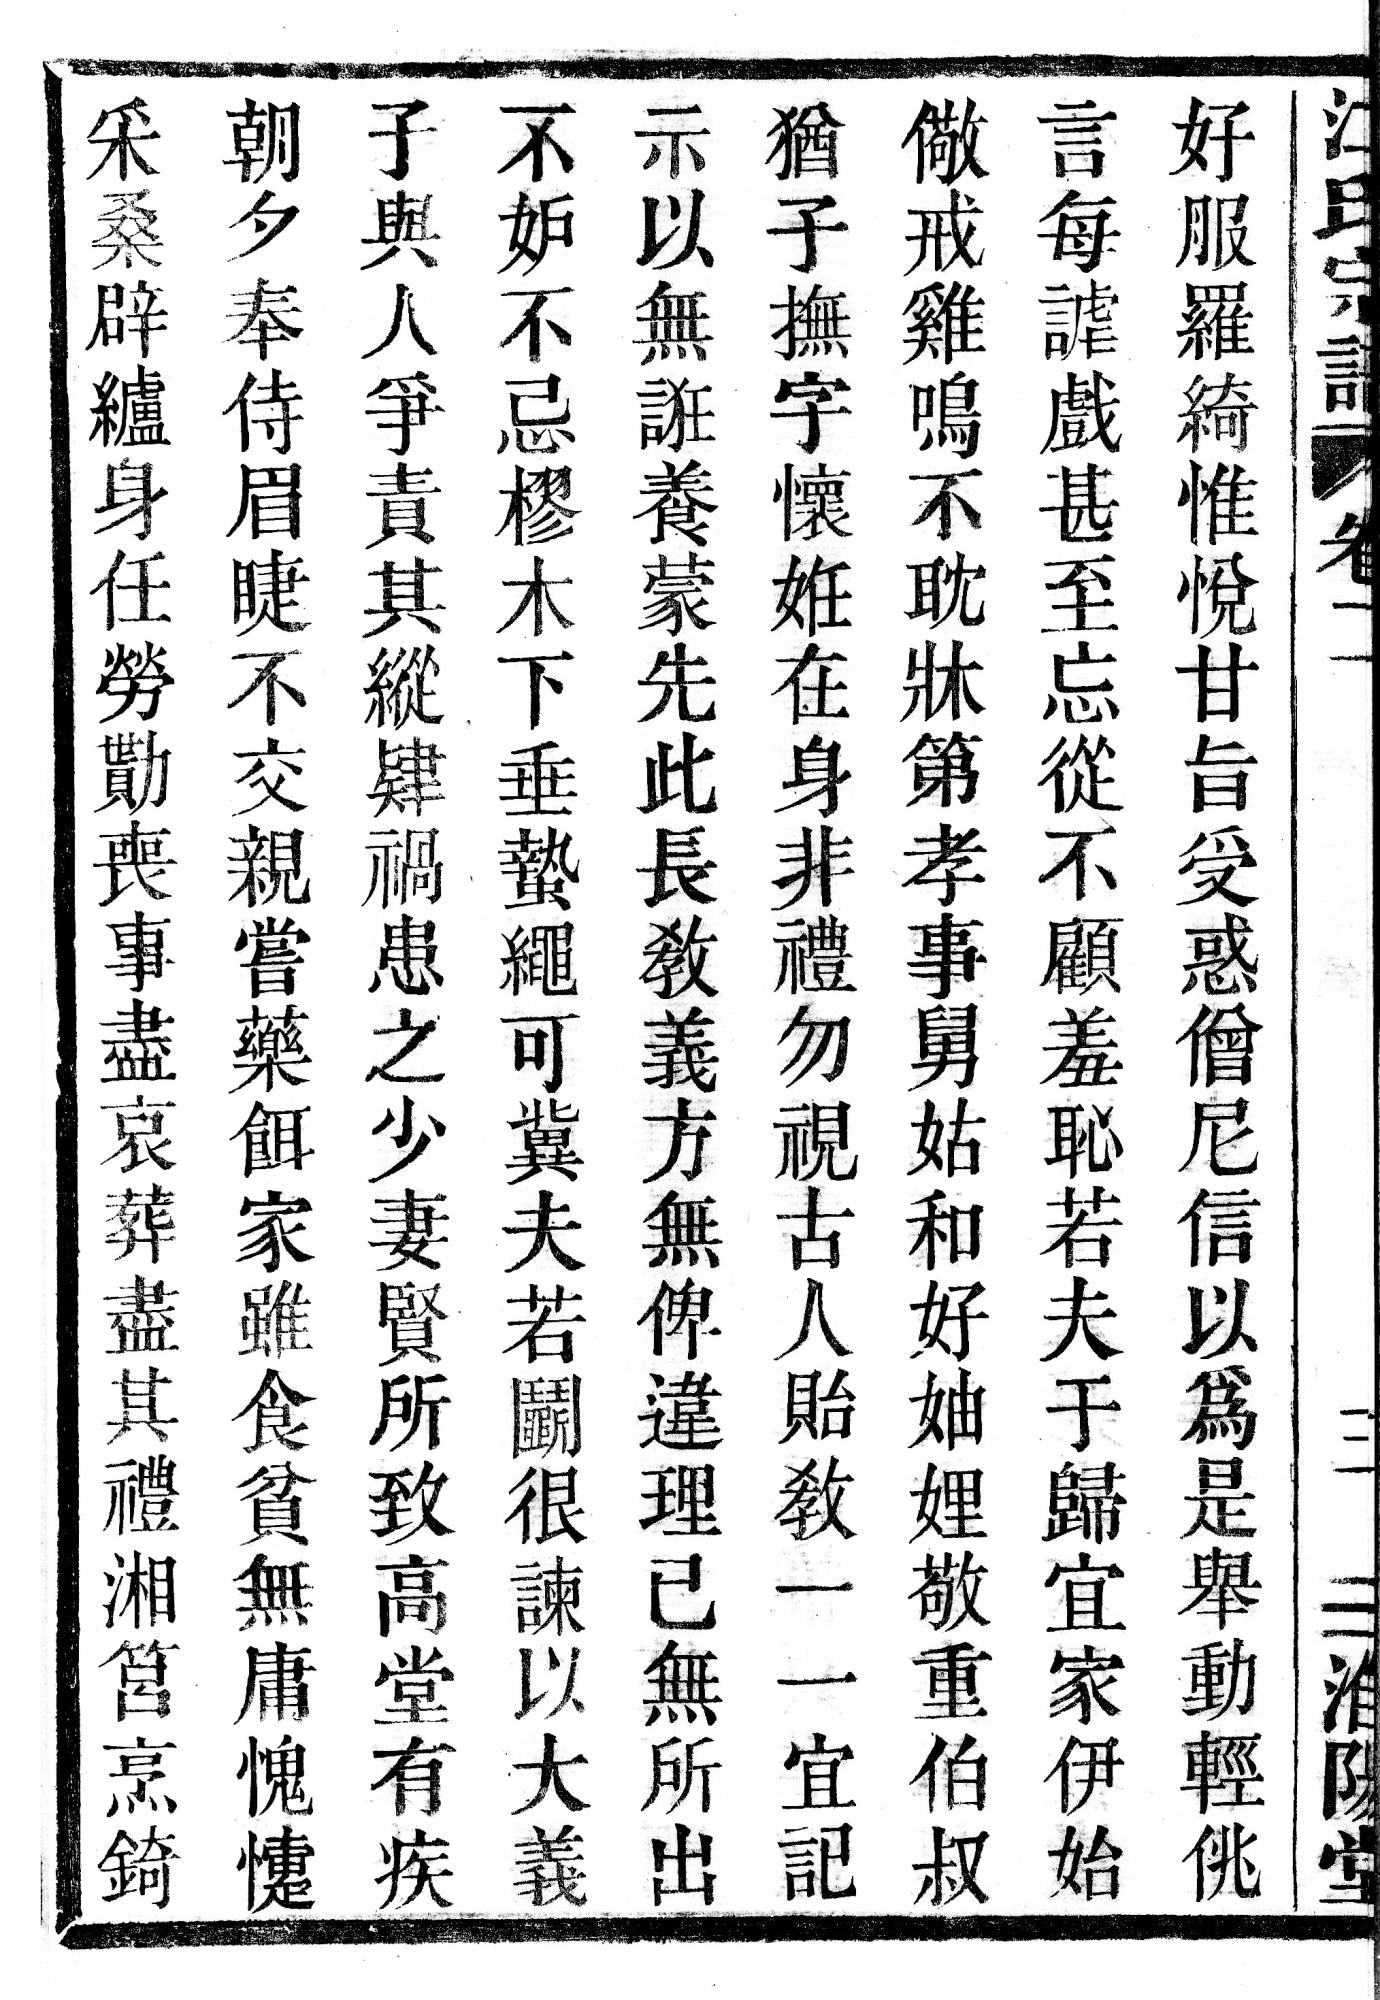 江氏宗譜 卷二 二 淮陽堂
好服羅綺惟悅甘旨受惑僧尼信以爲是舉動輕佻
言每謔戲甚至忘從不顧羞恥若夫于歸宜家伊始
儆戒雞鳴不耽牀第孝事舅姑和好妯娌敬重伯叔
猶子撫字懷姙在身非禮勿視古人貽教一一宜記
示以無誑養蒙先此長教義方無俾違理已無所出
不妒不忌樛木下垂蟄繩可冀夫若鬭很諫以大義
子與人爭責其縱肆禍患之少妻賢所致高堂有疾
朝夕奉侍眉睫不交親嘗藥餌家雖食貧無庸愧悽
采桑辟纑身任勞勩喪事盡哀葬盡其禮湘筥烹錡